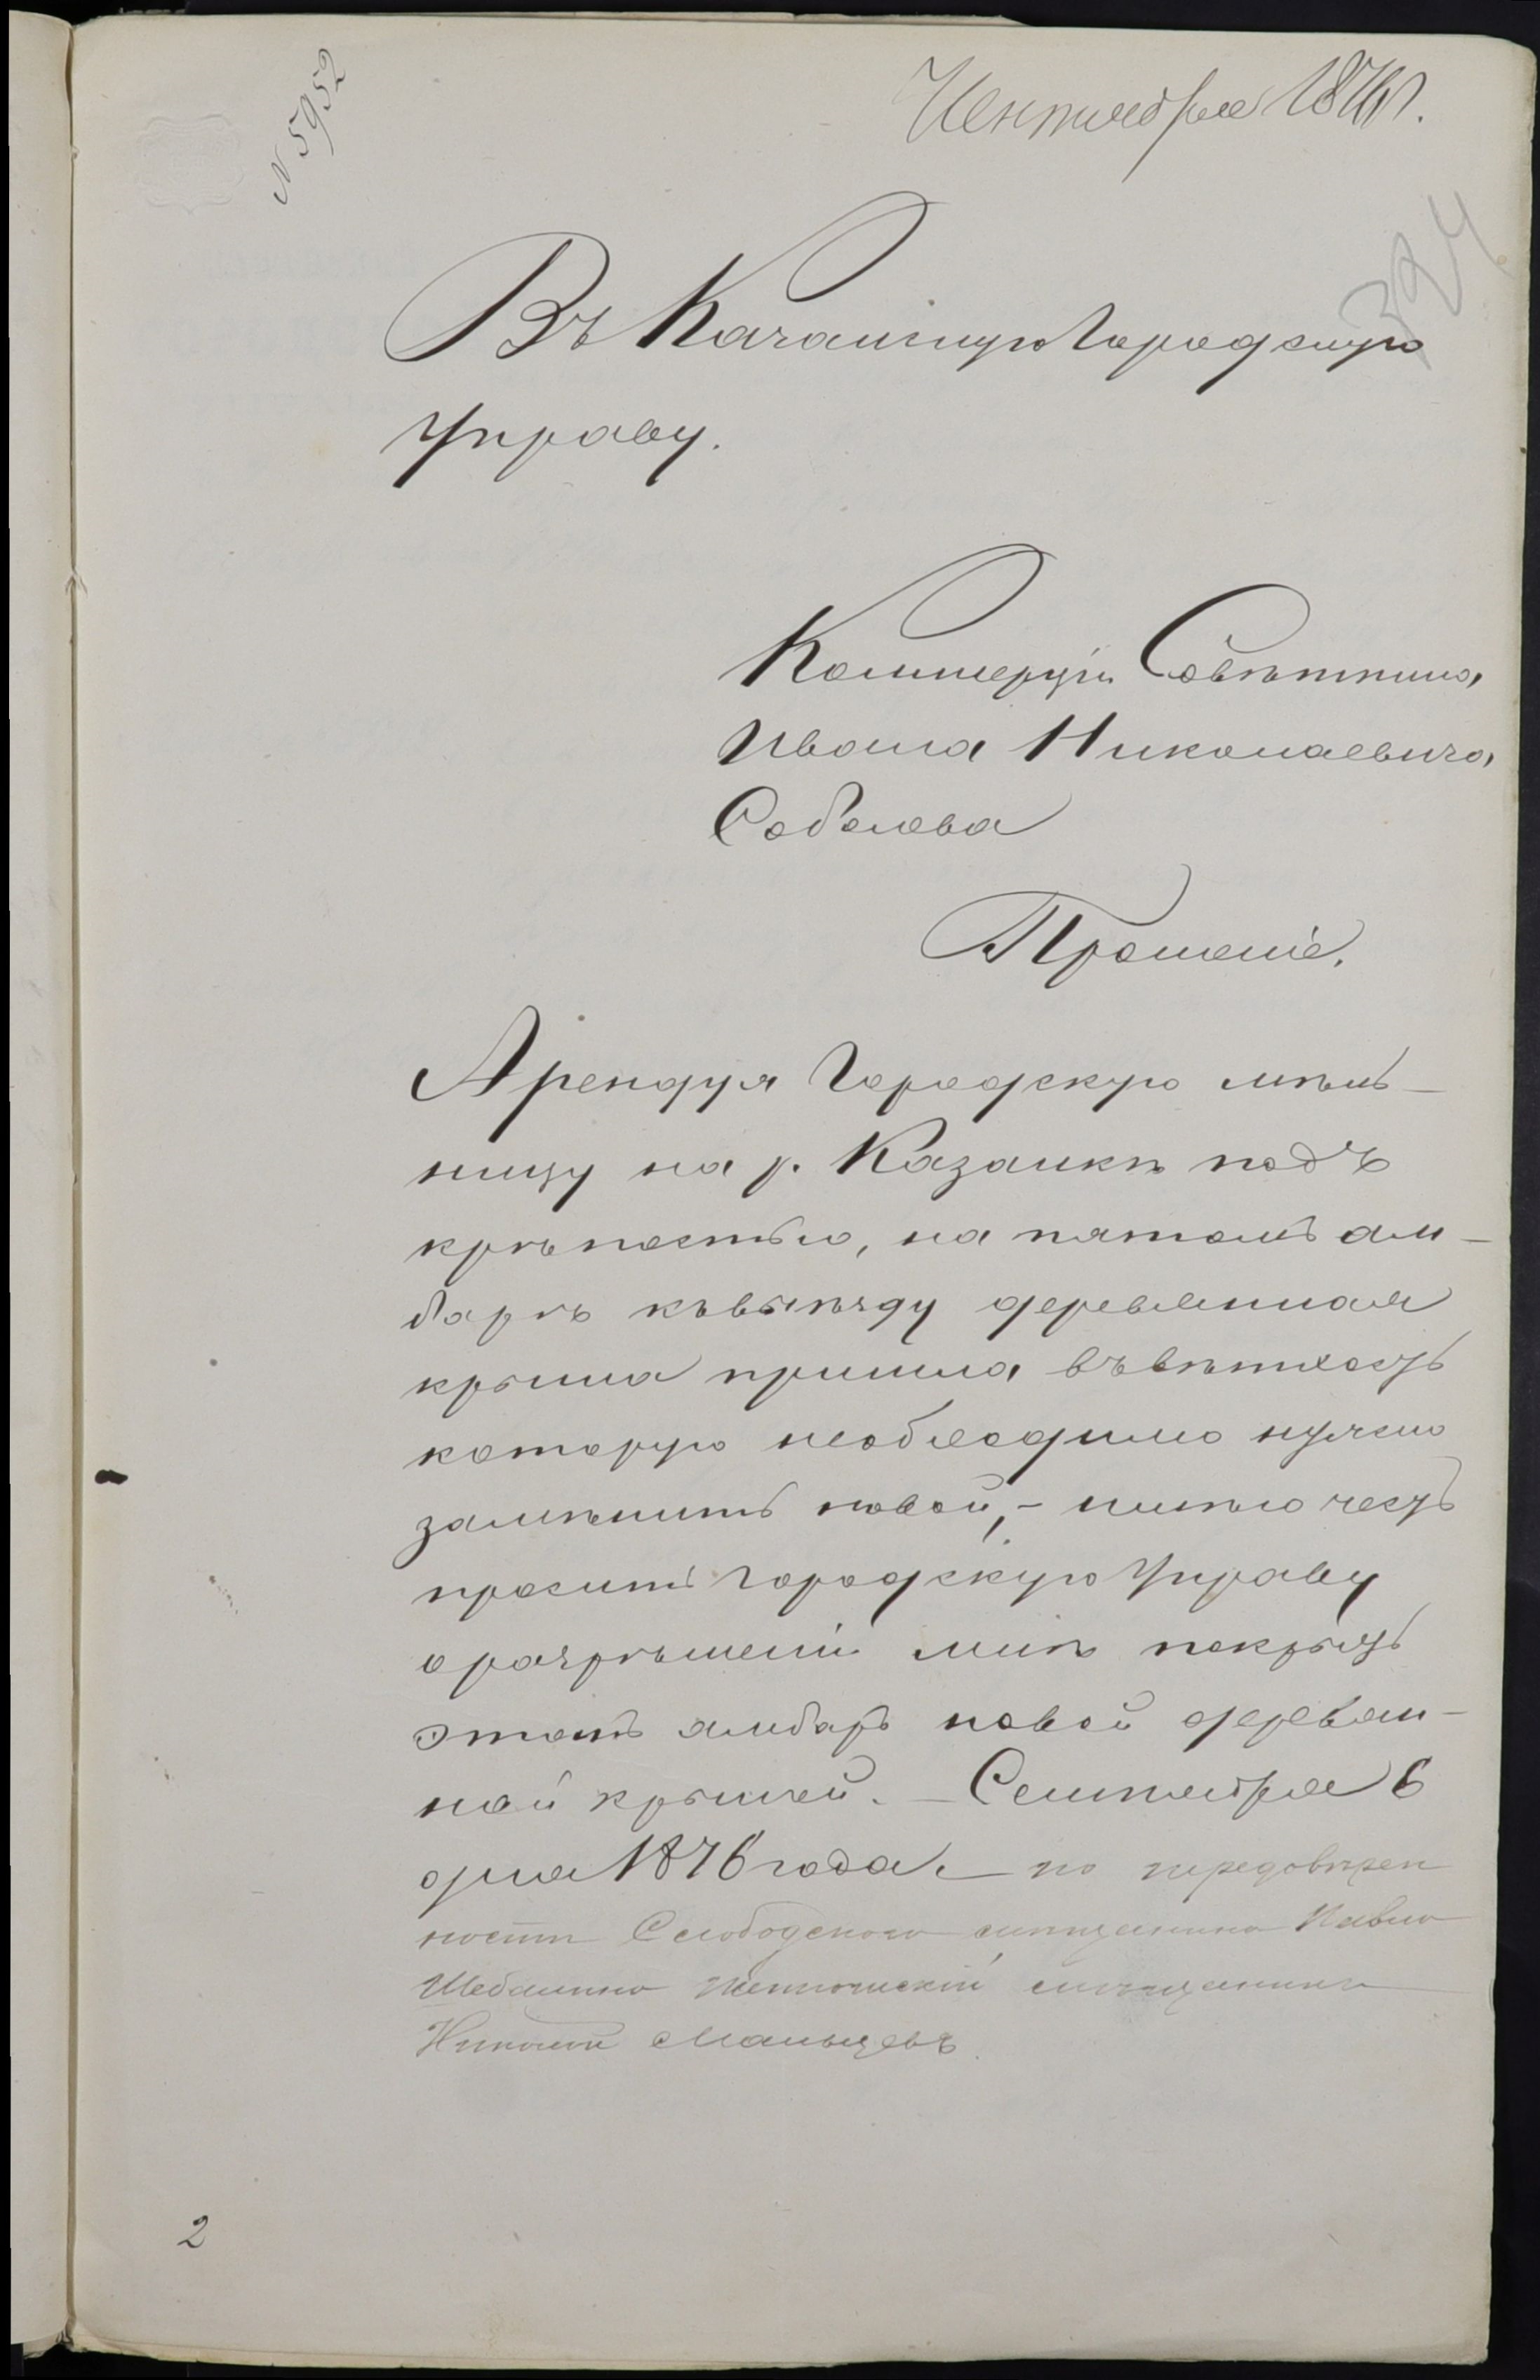 № 5952
7 Сентября 1876 г.
324
Въ Казанскую Городскую
Управу.
Коммерціи Совѣтника
Ивана Николаевича
Соболева
Прошеніе.
Арендуя Городскую мѣль-
ницу на р. Казанкѣ подъ
крѣпостью, на пятомъ ам-
барѣ къ въѣзду деревянная
крыша пришла въ вѣтхость
которую необходимо нужно
замѣнить новой, - имѣю честь
просить Городскую Управу
о разрѣшеніи мнѣ покрыть
этотъ амбаръ новой деревян-
ной крышей. - Сентября 6
дня 1876 года. по передовѣрен
ности Слободского мѣщанина Павла
Шебалина мѣщанинъ
Николай Мальцевъ.
2